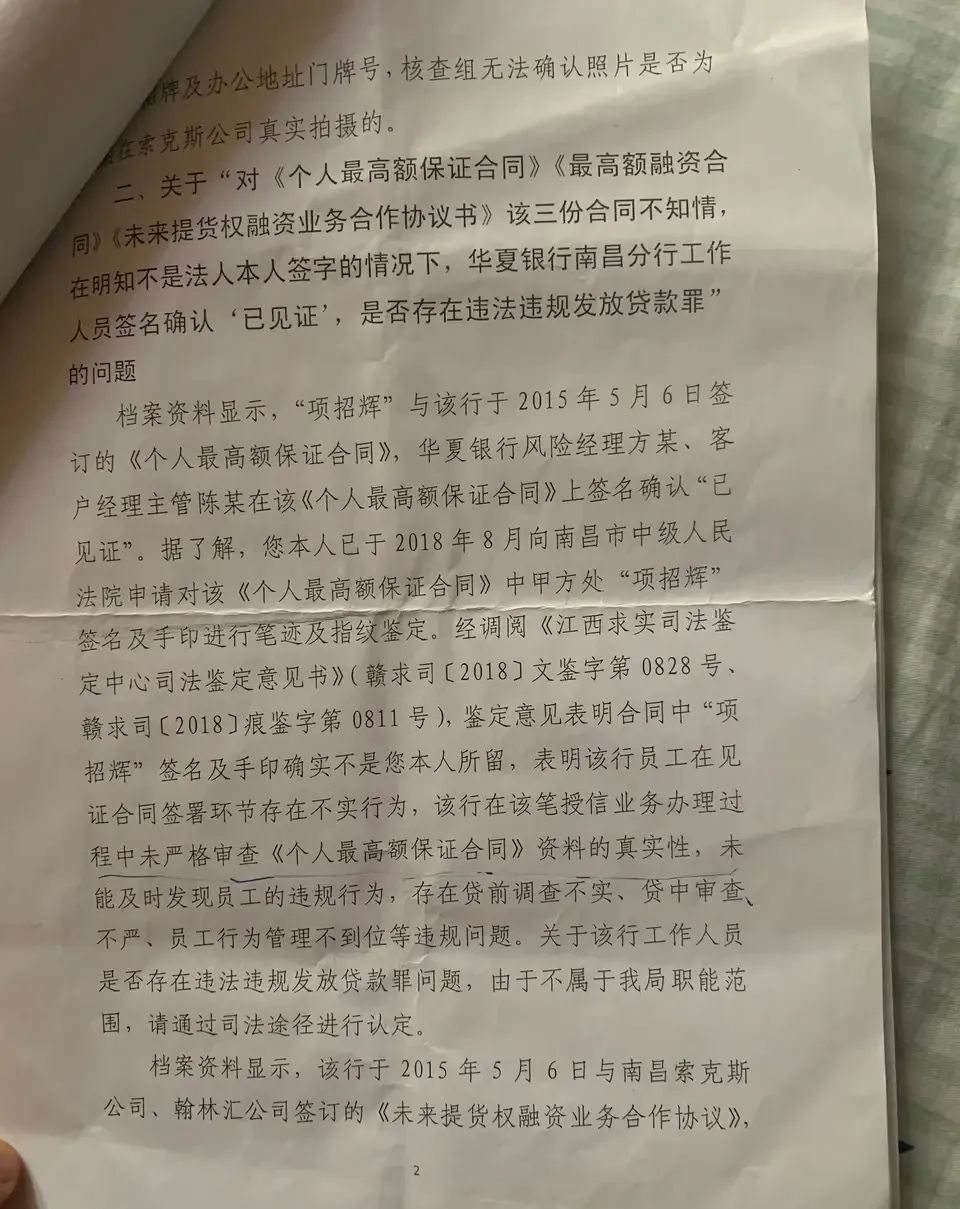 牌及办公地址门牌号，核查组无法确认照片是否为
在索克斯公司真实拍摄的。
二、关于“对《个人最高额保证合同》《最高额融资合
同》《未来提货权融资业务合作协议书》该三份合同不知情，
在明知不是法人本人签字的情况下，华夏银行南昌分行工作
人员签名确认‘已见证’，是否存在违法违规发放贷款罪”
的问题
档案资料显示，“项招辉”与该行于 2015 年 5 月 6 日签
订的《个人最高额保证合同》，华夏银行风险经理方某、客
户经理主管陈某在该《个人最高额保证合同》上签名确认“已
见证”。据了解，您本人已于 2018 年 8 月向南昌市中级人民
法院申请对该《个人最高额保证合同》中甲方处“项招辉”
签名及手印进行笔迹及指纹鉴定。经调阅《江西求实司法鉴
定中心司法鉴定意见书》（赣求司〔2018〕文鉴字第 0828 号、
赣求司〔2018〕痕鉴字第 0811 号），鉴定意见表明合同中“项
招辉”签名及手印确实不是您本人所留，表明该行员工在见
证合同签署环节存在不实行为，该行在该笔授信业务办理过
程中未严格审查《个人最高额保证合同》资料的真实性，未
能及时发现员工的违规行为，存在贷前调查不实、贷中审查
不严、员工行为管理不到位等违规问题。关于该行工作人员
是否存在违法违规发放贷款罪问题，由于不属于我局职能范
围，请通过司法途径进行认定。
档案资料显示，该行于 2015 年 5 月 6 日与南昌索克斯
公司、翰林汇公司签订的《未来提货权融资业务合作协议》，
2